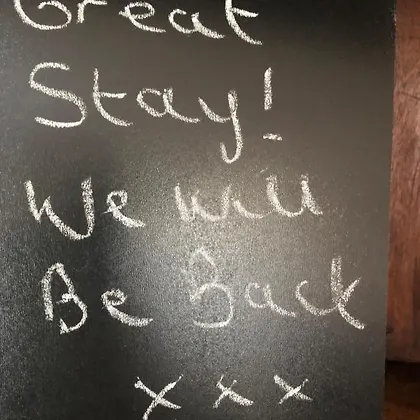 Great
Stay!
We Will
Be Back
x x x